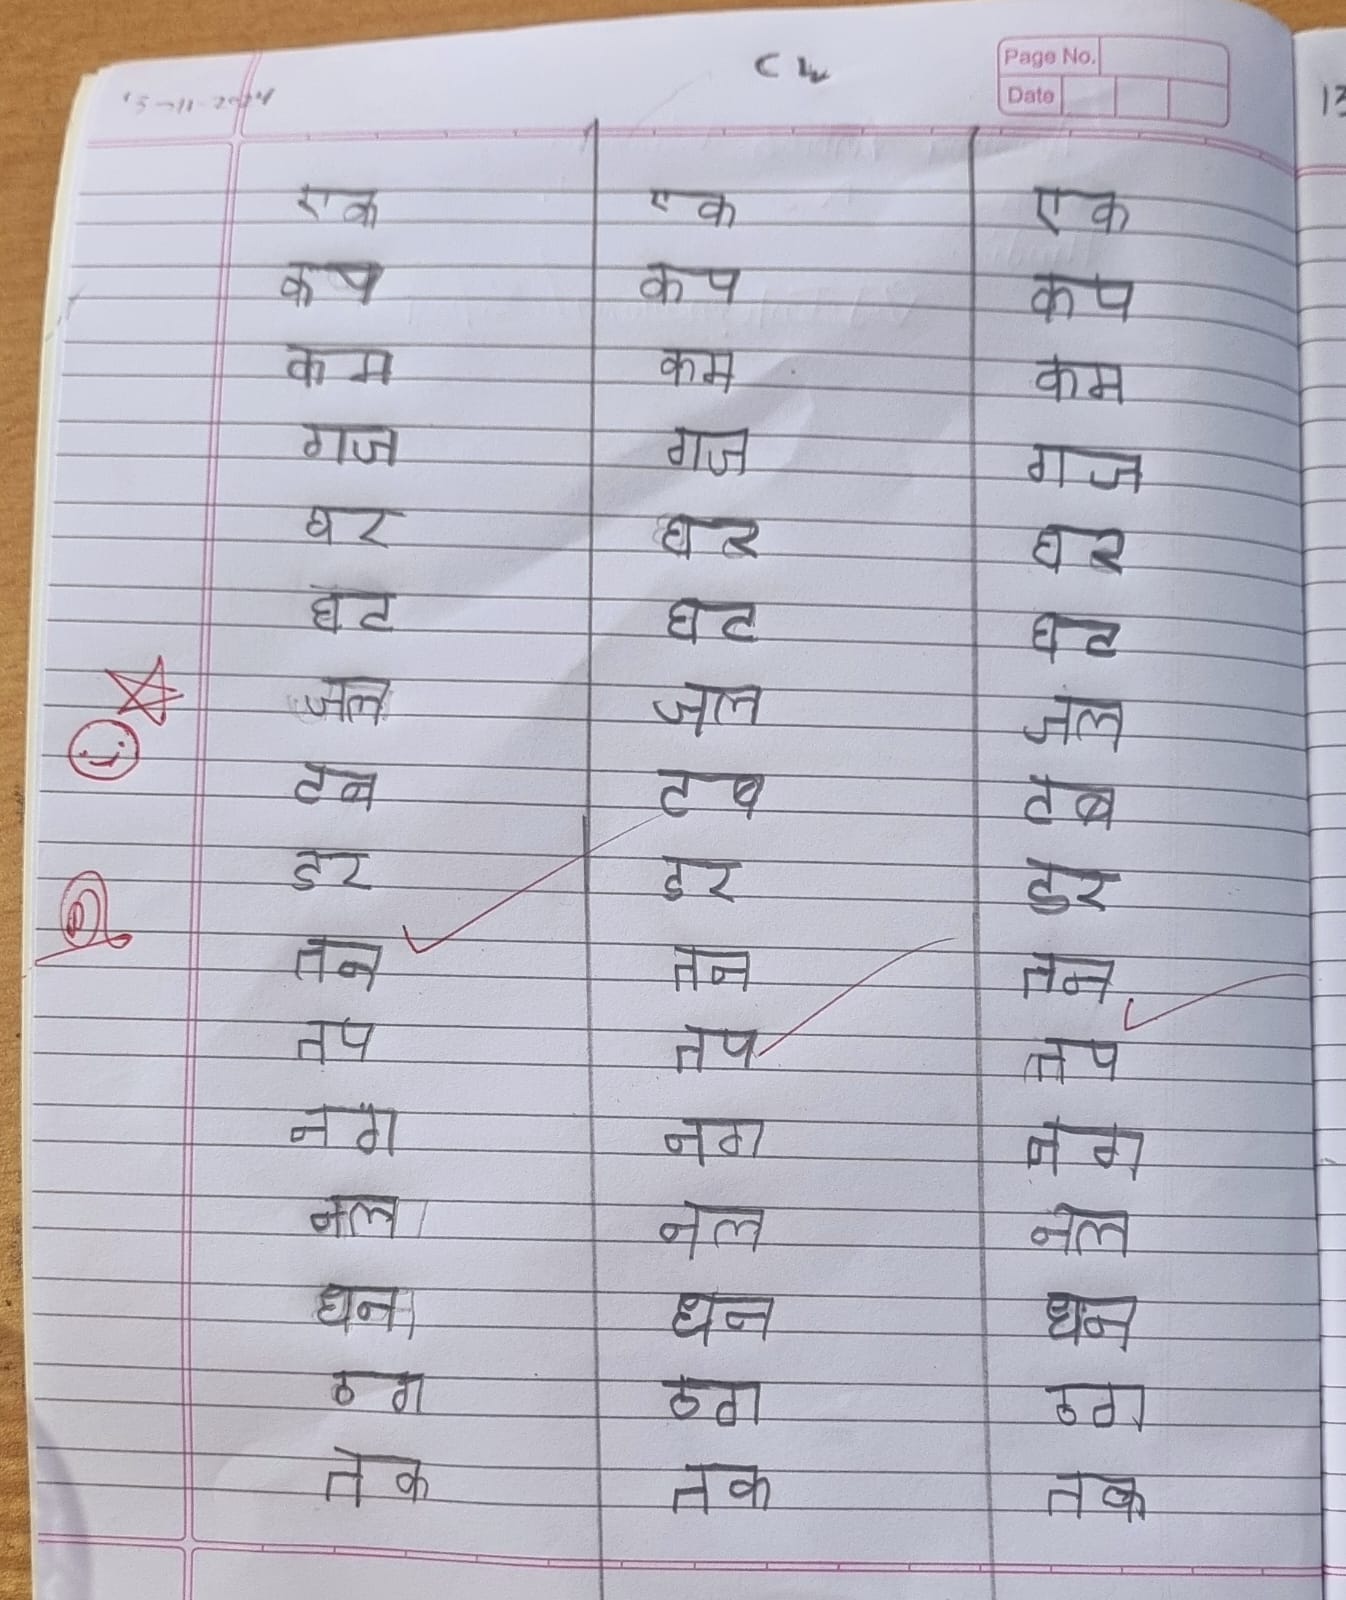 15-11-2024 CW Page No.
Date
13
एक एक एक
कप कप कप
कम कम कम
गज गज गज
घर घर घर
घट घट घट
जल जल जल
टब टब टब
डर डर डर
तन तन तन
तप तप तप
नग नग नग
नल नल नल
धन धन धन
ठग ठग ठग
तक तक तक